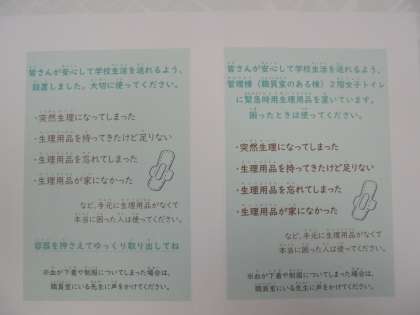 皆さんが安心して学校生活を送れるよう、
設置しました。大切に使ってください。
・突然生理になってしまった
・生理用品を持ってきたけど足りない
・生理用品を忘れてしまった
・生理用品が家になかった
など、手元に生理用品がなくて
本当に困った人は使ってください。
容器を押さえてゆっくり取り出してね
※血が下着や制服についてしまった場合は、
職員室にいる先生に声をかけてください。
皆さんが安心して学校生活を送れるよう、
管理棟（職員室のある棟）2階女子トイレ
に緊急時用生理用品を置いています。
困ったときは使ってください。
・突然生理になってしまった
・生理用品を持ってきたけど足りない
・生理用品を忘れてしまった
・生理用品が家になかった
など、手元に生理用品がなくて
本当に困った人は使ってください。
※血が下着や制服についてしまった場合は、
職員室にいる先生に声をかけてください。